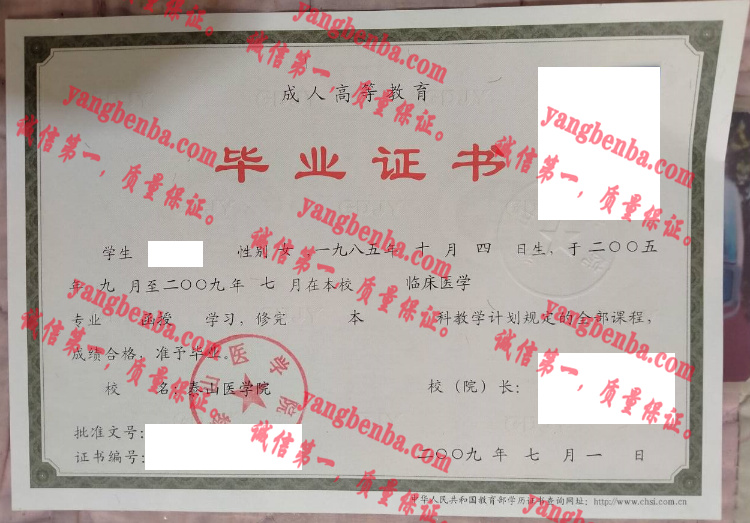 成人高等教育
毕业证书
学生 性别 女 一九八五年 十 月 四 日生，于二〇〇五
年 九 月至二〇〇九年 七 月在本校 临床医学
专业 函授 学习，修完 本 科教学计划规定的全部课程，
成绩合格，准予毕业。
校 名：泰山医学院
校（院）长：
批准文号：
证书编号：
二〇〇九 年 七 月 一 日
中华人民共和国教育部学历证书查询网址：http://www.chsi.com.cn
泰山医学院
yangbenba.com
诚信第一，质量保证。
yangbenba.com
诚信第一，质量保证。
yangbenba.com
诚信第一，质量保证。
yangbenba.com
诚信第一，质量保证。
yangbenba.com
诚信第一，质量保证。
yangbenba.com
诚信第一，质量保证。
yangbenba.com
诚信第一，质量保证。
yangbenba.com
诚信第一，质量保证。
yangbenba.com